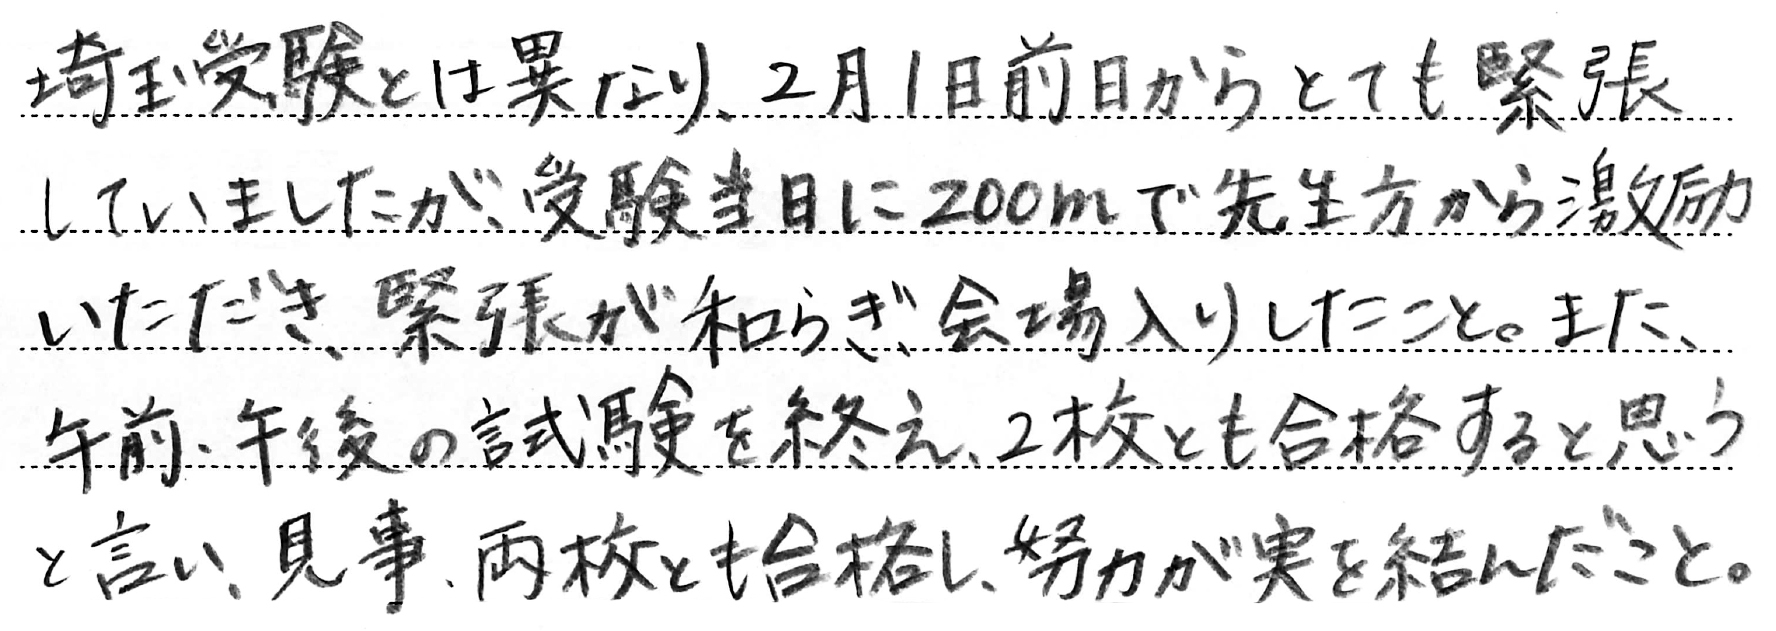 埼玉受験とは異なり、2月1日前日からとても緊張
していましたが、受験当日に200mで先生方から激励
いただき、緊張が和らぎ、会場入りしたこと。また、
午前、午後の試験を終え、2校とも合格すると思う
と言い、見事、両校とも合格し、努力が実を結んだこと。